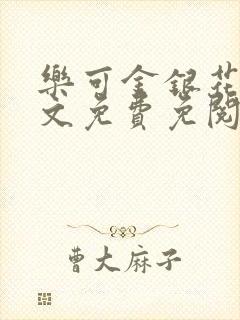 樂可金銀花
文免費免閱
曹大麻子